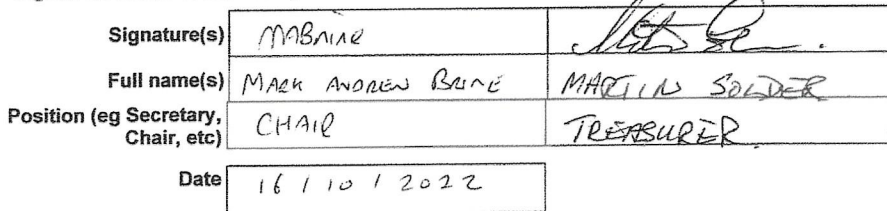 Signature(s) MABrine
Full name(s) MARK ANDREW BRINE MARTIN SOLDER
Position (eg Secretary, Chair, etc) CHAIR TREASURER
Date 16 / 10 / 2022